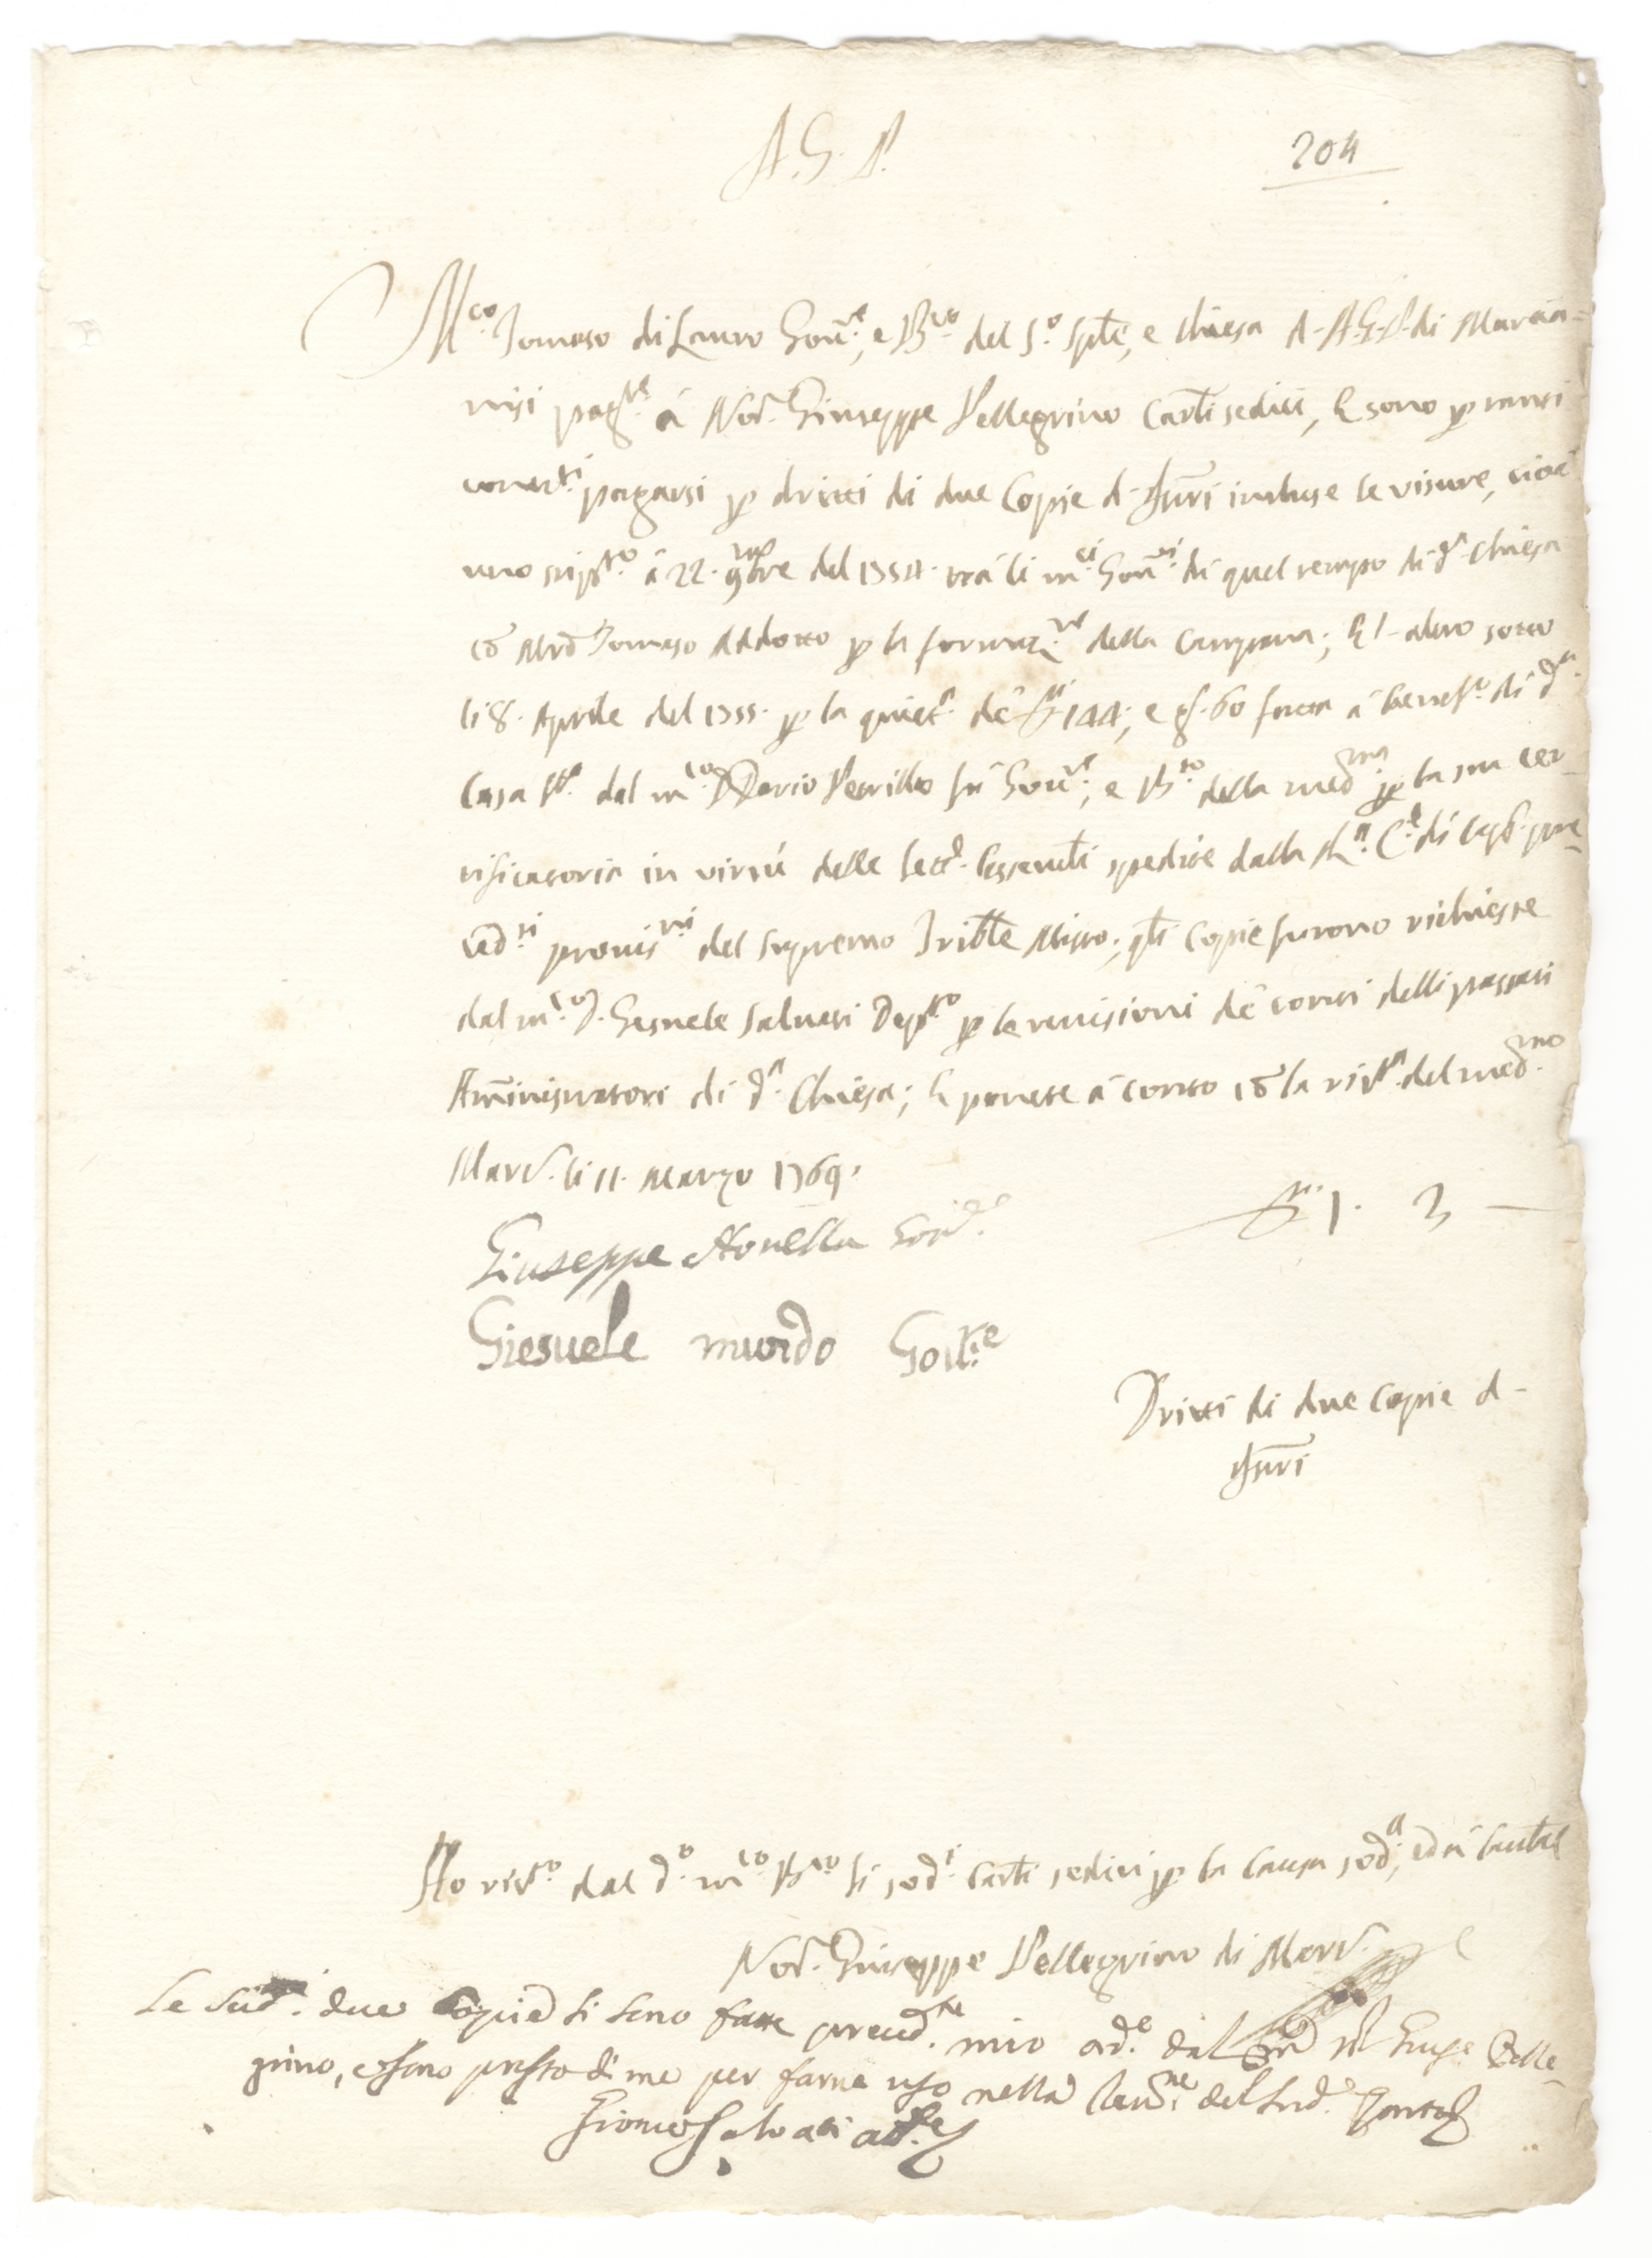 A.G.P.
204
M.co Tomaso di Lauro Gov.re, e B.co del S.o Sple, e Chiesa d. A.G.P. di Marcia=
nisi pag.te à Not. Giuseppe Pellegrino Carli sedici, e sono p tanti
conv.ti pagarsi p dritti di due Copie d. Istri incluse le visure, cioè
uno stip.to à 22. 9bre del 1754. trà li m.ci Gov.ri di quel tempo di d.a Chiesa
cō Mro Tomaso Addotto p la formaz.ne della Campana; e l'altro sotto
li 8. Aprile del 1755. p la quiet. de 144; e g. 60 fatta à benef.o di d.a
Casa S.ta dal m.co Dario Petrillo fù Gov.re, e B.ro della med.ma p la sua cer=
tificatoria in virtù delle lett. spedite dalla R.a C.e di Cap. pre=
ced.ti provis.ni del Supremo Trible Misto; qli Copie furono richieste
dal m.co D. Gesuele Salvati Dep.to p le revisioni de conti delli passati
Amministratori di d.a Chiesa; e ponete à conto cō la riv.ta del med.mo
Marc. li 11. Marzo 1769.
1. 3 —
Giuseppe Novella Gov.re
Giesuele muordo Gov.re
Dritti di due Copie d-
Istri
Ho ric.to dal d.o m.co B.ro li sod.i Carli sedici p la causa sod.a, ed à cautela
Not. Giuseppe Pellegrino di Marc.
Le sud. due Copie si sono fatte preced.te mio ord.e dal m. Giuse Pelle=
grino, e sono presso di me per farne uso nella del sud.
Salvati